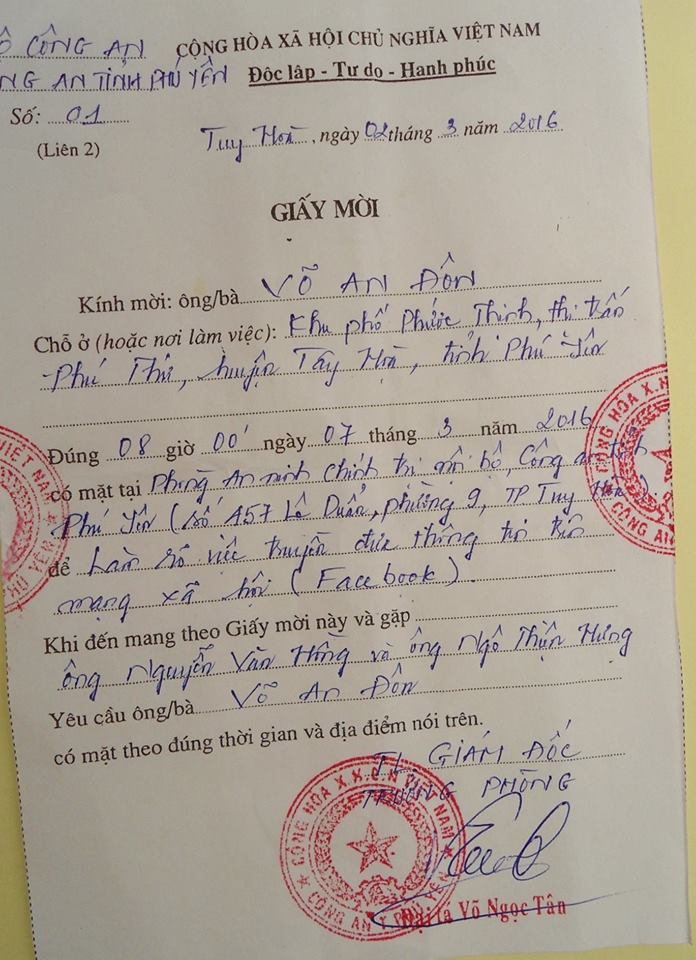 Ộ CÔNG AN
CỘNG HÒA XÃ HỘI CHỦ NGHĨA VIỆT NAM
NG AN TỈNH PHÚ YÊN
Độc lập - Tự do - Hạnh phúc
Số: 01
(Liên 2)
Tuy Hoà, ngày 02 tháng 3 năm 2016
GIẤY MỜI
Kính mời: ông/bà VÕ AN ĐÔN
Chỗ ở (hoặc nơi làm việc): Khu phố Phước Thịnh, thị trấn
Phú Thứ, huyện Tây Hoà, tỉnh Phú Yên
Đúng 08 giờ 00' ngày 07 tháng 3 năm 2016
có mặt tại Phòng An ninh chính trị nội bộ, Công an tỉnh
Phú Yên (số A57 Lê Duẩn, phường 9, TP Tuy Hoà)
để Làm rõ việc truyền đưa thông tin trên
mạng xã hội (Facebook).
Khi đến mang theo Giấy mời này và gặp
ông Nguyễn Văn Hồng và ông Ngô Thuận Hưng
Yêu cầu ông/bà Võ An Đôn
có mặt theo đúng thời gian và địa điểm nói trên.
TL GIÁM ĐỐC
TRƯỞNG PHÒNG
CỘNG HÒA X.H.C.N VIỆT NAM
CÔNG AN T. PHÚ YÊN
Đại tá Võ Ngọc Tân